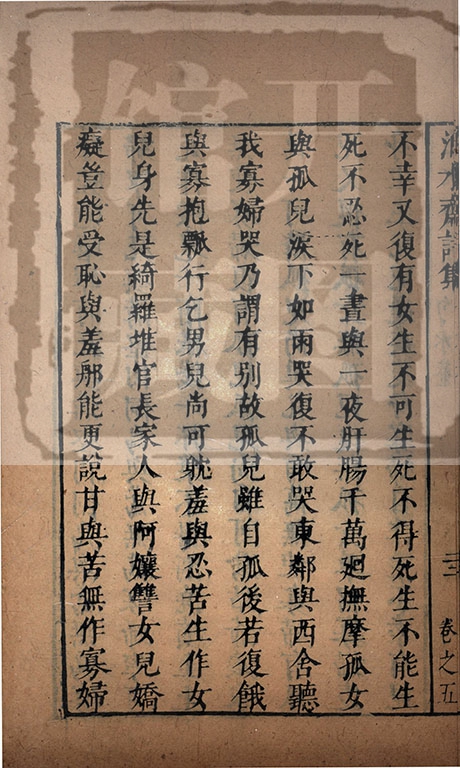 齋詩集
卷之五
不幸又復有女生不可生死不得死生不能生
死不忍死一晝與一夜肝腸千萬廻撫摩孤女
與孤兒淚下如雨哭復不敢哭東鄰與西舍聽
我寡婦哭乃謂有别故孤兒雖自孤後若復餓
與寡抱瓢行乞男兒尚可躭羞與忍苦生作女
兒身先是綺羅堆官長家人與阿孃讐女兒嬌
癡豈能受恥與羞那能更說甘與苦無作寡婦